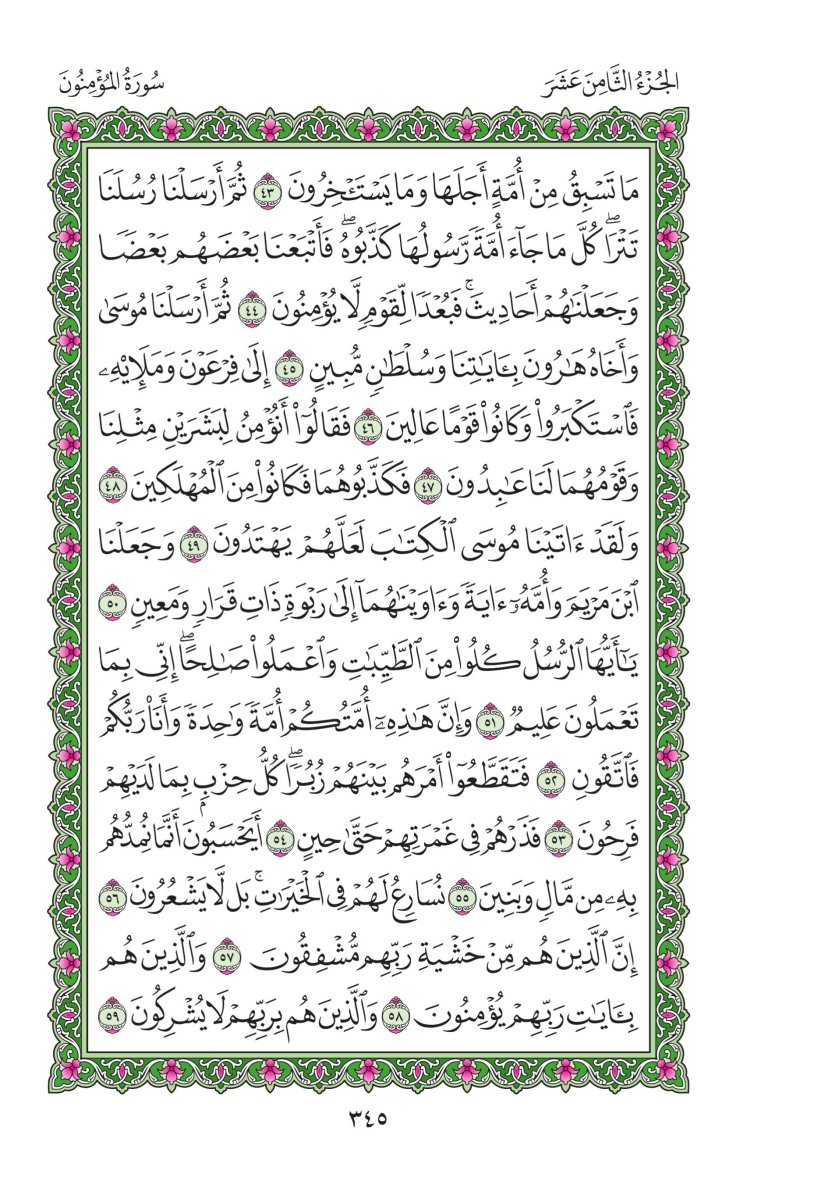 الجُزْءُ الثَّامِنَ عَشَرَ
سُورَةُ المُؤْمِنُونَ
مَا تَسْبِقُ مِنْ أُمَّةٍ أَجَلَهَا وَمَا يَسْتَـْٔخِرُونَ ٤٣ ثُمَّ أَرْسَلْنَا رُسُلَنَا
تَتْرَاۖ كُلَّ مَا جَآءَ أُمَّةً رَّسُولُهَا كَذَّبُوهُۖ فَأَتْبَعْنَا بَعْضَهُم بَعْضًا
وَجَعَلْنَٰهُمْ أَحَادِيثَۚ فَبُعْدًا لِّقَوْمٍ لَّا يُؤْمِنُونَ ٤٤ ثُمَّ أَرْسَلْنَا مُوسَىٰ
وَأَخَاهُ هَٰرُونَ بِـَٔايَٰتِنَا وَسُلْطَٰنٍ مُّبِينٍ ٤٥ إِلَىٰ فِرْعَوْنَ وَمَلَإِيْهِۦ
فَٱسْتَكْبَرُوا۟ وَكَانُوا۟ قَوْمًا عَالِينَ ٤٦ فَقَالُوٓا۟ أَنُؤْمِنُ لِبَشَرَيْنِ مِثْلِنَا
وَقَوْمُهُمَا لَنَا عَٰبِدُونَ ٤٧ فَكَذَّبُوهُمَا فَكَانُوا۟ مِنَ ٱلْمُهْلَكِينَ ٤٨
وَلَقَدْ ءَاتَيْنَا مُوسَى ٱلْكِتَٰبَ لَعَلَّهُمْ يَهْتَدُونَ ٤٩ وَجَعَلْنَا
ٱبْنَ مَرْيَمَ وَأُمَّهُۥٓ ءَايَةً وَءَاوَيْنَٰهُمَآ إِلَىٰ رَبْوَةٍ ذَاتِ قَرَارٍ وَمَعِينٍ ٥٠
يَٰٓأَيُّهَا ٱلرُّسُلُ كُلُوا۟ مِنَ ٱلطَّيِّبَٰتِ وَٱعْمَلُوا۟ صَٰلِحًاۖ إِنِّى بِمَا
تَعْمَلُونَ عَلِيمٌ ٥١ وَإِنَّ هَٰذِهِۦٓ أُمَّتُكُمْ أُمَّةً وَٰحِدَةً وَأَنَا۠ رَبُّكُمْ
فَٱتَّقُونِ ٥٢ فَتَقَطَّعُوٓا۟ أَمْرَهُم بَيْنَهُمْ زُبُرًاۖ كُلُّ حِزْبٍۭ بِمَا لَدَيْهِمْ
فَرِحُونَ ٥٣ فَذَرْهُمْ فِى غَمْرَتِهِمْ حَتَّىٰ حِينٍ ٥٤ أَيَحْسَبُونَ أَنَّمَا نُمِدُّهُم
بِهِۦ مِن مَّالٍ وَبَنِينَ ٥٥ نُسَارِعُ لَهُمْ فِى ٱلْخَيْرَٰتِۚ بَل لَّا يَشْعُرُونَ ٥٦
إِنَّ ٱلَّذِينَ هُم مِّنْ خَشْيَةِ رَبِّهِم مُّشْفِقُونَ ٥٧ وَٱلَّذِينَ هُم
بِـَٔايَٰتِ رَبِّهِمْ يُؤْمِنُونَ ٥٨ وَٱلَّذِينَ هُم بِرَبِّهِمْ لَا يُشْرِكُونَ ٥٩
٣٤٥